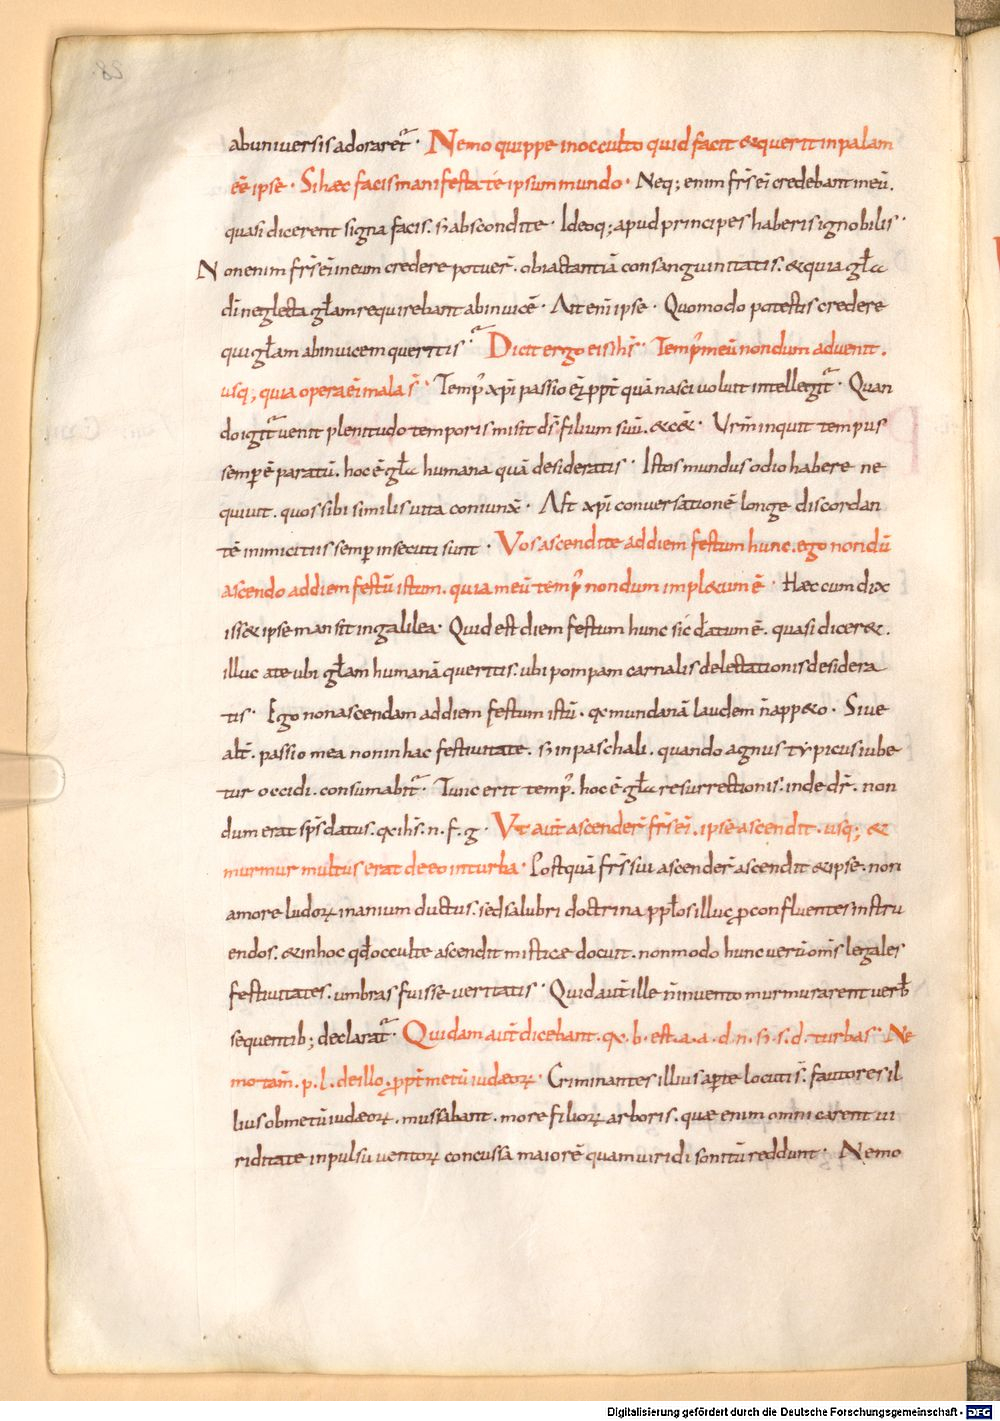 ab universis adoraret᷑. Nemo quippe in occulto quid facit & querit in palam
eē ipse. Si haec facis manifesta te ipsum mundo. Neq; enim fr̄s ei credebant in eū.
quasi dicerent signa facis. sꝫ abscondite. Ideoq; apud principes haberis ignobilis.
Non enim fr̄s ei in eum credere potuer̄. ob iactantiā consanguinitatis. & quia gƚa
dī neglecta gƚam requirebant ab invicē. Ait enī ipse. Quomodo potestis credere
qui gƚam ab invicem queritis. Dicit ergo eis ihs̄. Temp' meū nondum advenit.
usq; quia opera ei mala s̄. Temp' xpī passio ē. ppt̄ quā nasci voluit intellegit᷑. Quan
do igit᷑ venit plenitudo temporis misit ds̄ filium suū. & c&̄. Vr̄m inquit tempus
semp ē paratū. hoc ē gƚa humana quā desideratis. Istos mundus odio habere ne
quivit. quos sibi similis vita coniunx̄. Aſt xpī conversationē longe discordan
tē inimicitiis semp insecuti sunt. Vos ascendite ad diem festum hunc. ego nondū
ascendo ad diem festū istum. quia meū temp' nondum impl&um ē. Haec cum dix
iss& ipse mansit in galilea. Quid est diem festum hunc sic datum ē. quasi dicer&.
illuc ate ubi gƚam humanā queritis. ubi pompam carnalis delectationis desidera
tis. Ego non ascendam ad diem festum istū. qa mundanā laudem n̄ app&o. Sive
alt̄. passio mea non in hac festivitate. sꝫ in paschali. quando agnus typicus iube
tur occidi. consumabit᷑. Tunc erit temp'. hoc ē gƚa resurrectionis. inde dr̄. non
dum erat sps̄ datus. qa ihs̄. n. f. g. Vt aut̄ ascender̄ fr̄s ei. ipse ascendit. usq; &
murmur multus erat de eo in turba. Postquā fr̄s sui ascender̄ ascendit & ipse. non
amore ludoꝝ inanium ductus. sed salubri doctrina ppƚos illuc ꝓ confluentes instru
endos. & in hoc qđ occulte ascendit mistice docuit. non modo hunc verū omīs legales
festivitates. umbras fuisse veritatis. Quid aut̄ ille n̄ invento murmurarent verƀ
sequentib; declarat᷑. Quidam aut̄ dicebant. qa. b. est. a. a. d. n. sꝫ. s. d. turbas. Ne
mo tam̄. p. l. de illo. ppt̄ metū iudæoꝝ. Criminantes illius apte locuti s̄. fautores il
lius ob metū iudæoꝝ. mussabant. more filioꝝ arboris. quae enim omni carent vi
riditate inpulsu ventoꝝ concussa maiorē quam viridi sonitū reddunt. Nemo
Digitalisierung gefördert durch die Deutsche Forschungsgemeinschaft - DFG